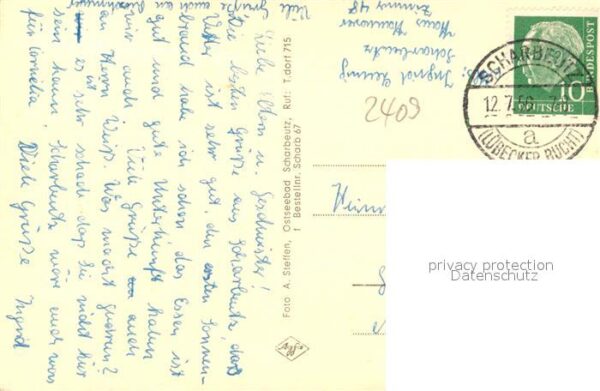 Ingrid
Scharbeutz
Haus Hannover
Zimmer 48
Viele
Grüße auch an
Liebe Eltern u. Geschwister!
Die besten Grüße aus Scharbeutz, das
Wetter ist sehr gut, den ersten Sonnen-
brand habe ich schon das Essen ist
und gute Unterkunft haben
wir auch
Viele Grüße auch
an Herrn Weiß. Was macht
ist es sehr schade das Sie nicht hier
sein kann. Scharbeutz wäre auch was
für Cornelia
Viele Grüße Ingrid
Foto A. Steffen, Ostseebad Scharbeutz, Ruf: T.dorf 715
1 Bestellnr. Scharb 67
2409
SCHARBEUTZ
12.7.
a
(LÜBECKER BUCHT)
10
DEUTSCHE
BUNDESPOST
privacy protection
Datenschutz